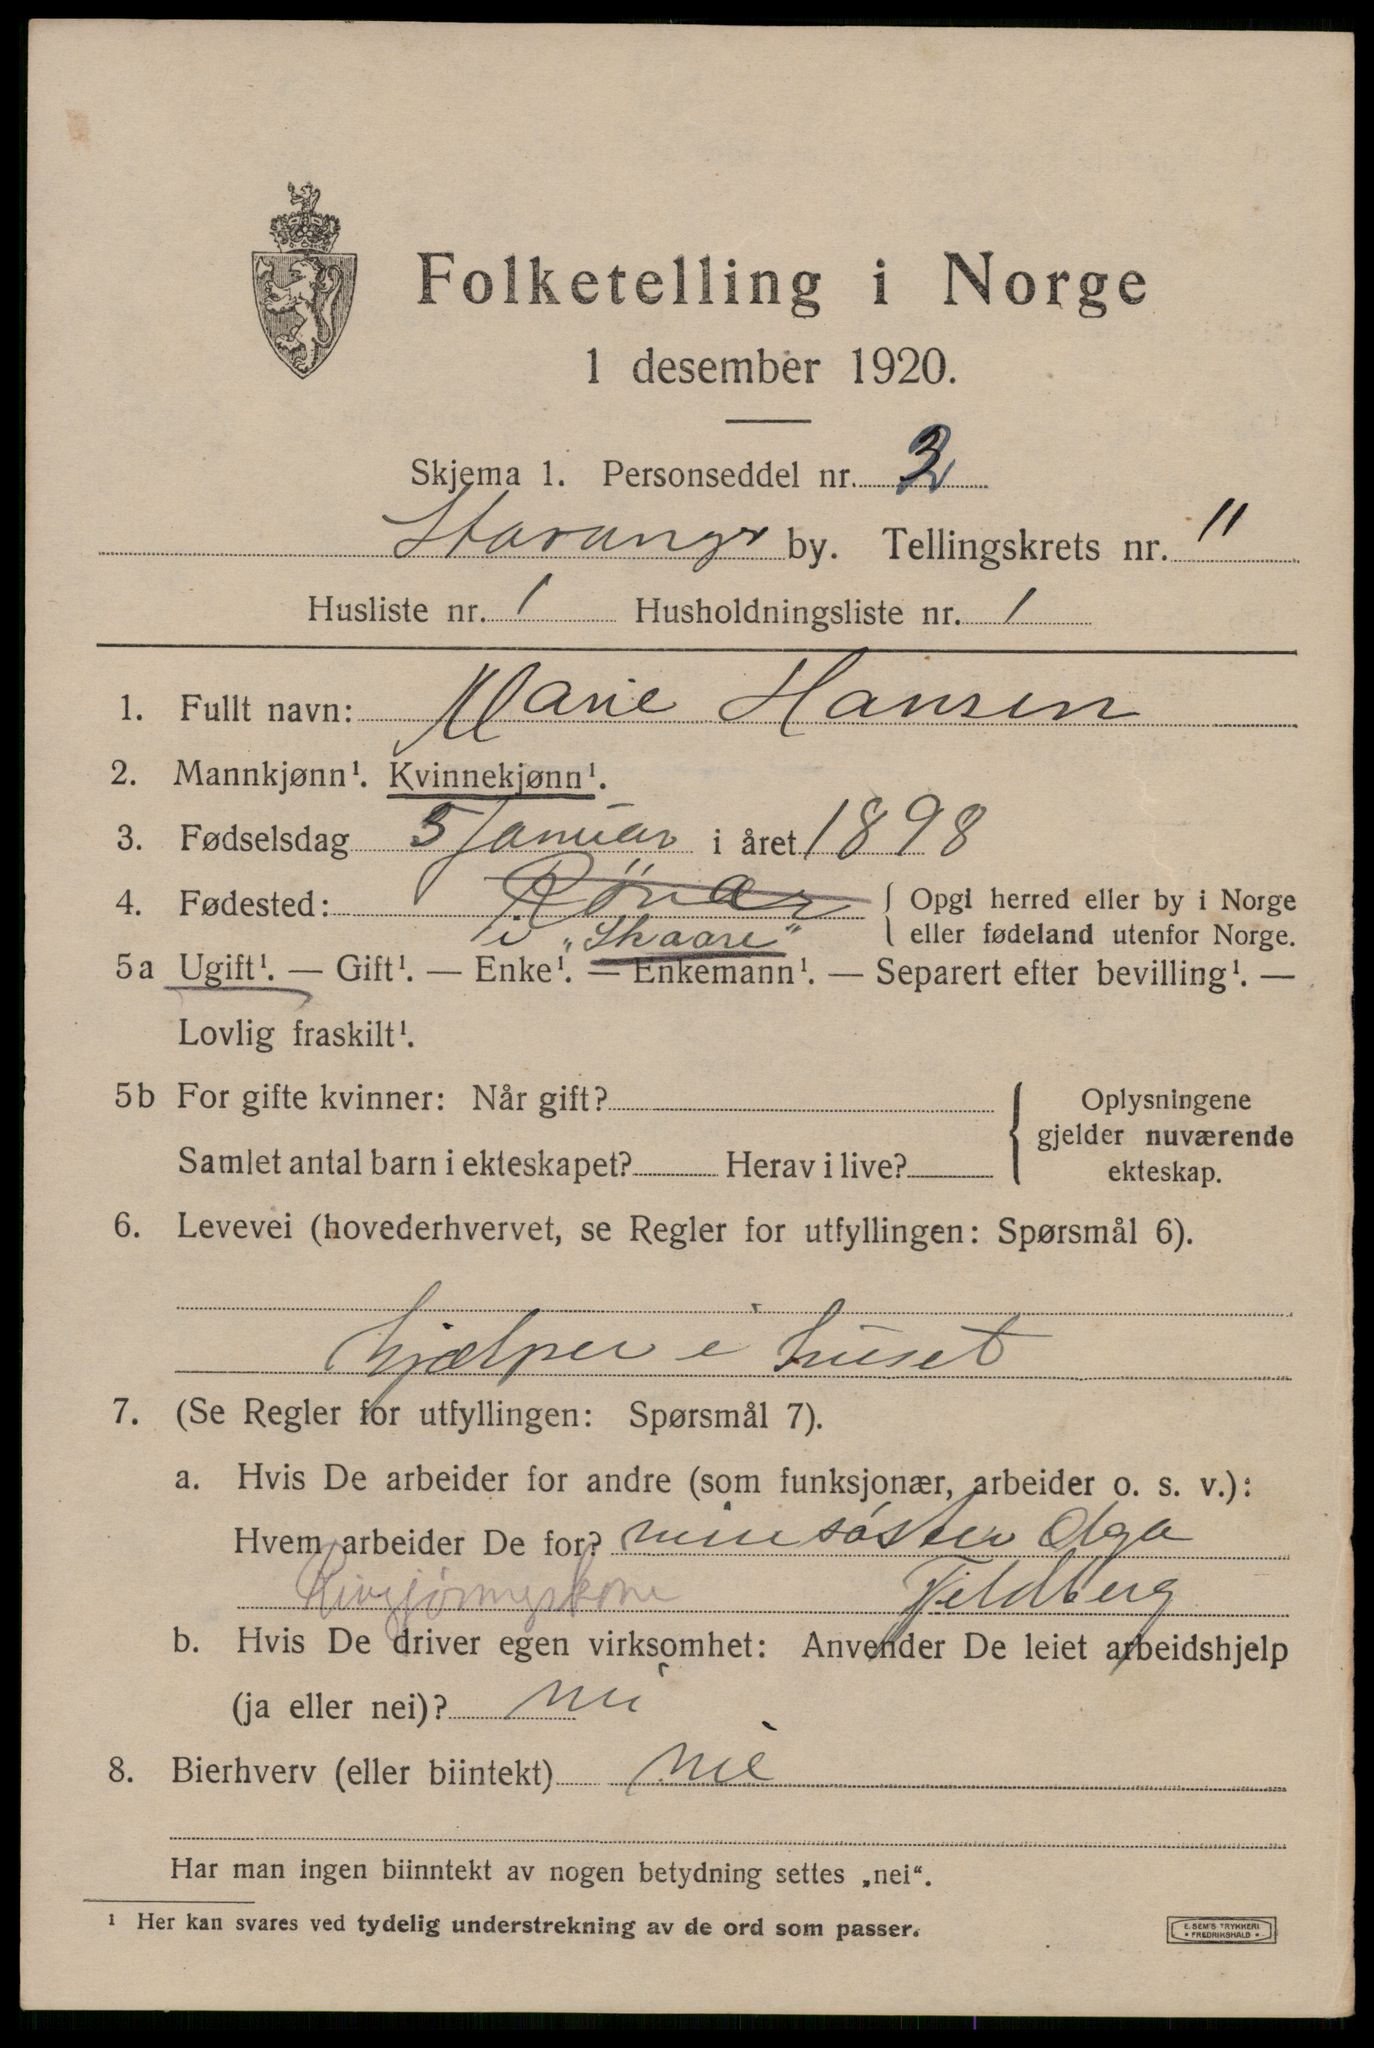 Folketelling i Norge
1 desember 1920.
Skjema 1. Personseddel nr. 3
Stavanger by. Tellingskrets nr. 11
Husliste nr. 1 Husholdningsliste nr. 1
1. Fullt navn: Marie Hansen
2. Mannkjønn¹. Kvinnekjønn¹.
3. Fødselsdag 5 Januar i året 1898
4. Fødested: Rövær { Opgi herred eller by i Norge
i „Skaare" { eller fødeland utenfor Norge.
5a Ugift¹. — Gift¹. — Enke¹. — Enkemann¹. — Separert efter bevilling¹. —
Lovlig fraskilt¹.
5b For gifte kvinner: Når gift? { Oplysningene
gjelder nuværende
Samlet antal barn i ekteskapet? Herav i live? ekteskap.
6. Levevei (hovederhvervet, se Regler for utfyllingen: Spørsmål 6).
hjælper i huset
7. (Se Regler for utfyllingen: Spørsmål 7).
a. Hvis De arbeider for andre (som funksjonær, arbeider o. s. v.):
Hvem arbeider De for? min søster Olga
Fjeldberg
b. Hvis De driver egen virksomhet: Anvender De leiet arbeidshjelp
(ja eller nei)? nei
8. Bierhverv (eller biintekt) nei
Har man ingen biinntekt av nogen betydning settes „nei".
¹ Her kan svares ved tydelig understrekning av de ord som passer.
E. SEM'S TRYKKERI
FREDRIKSHALD